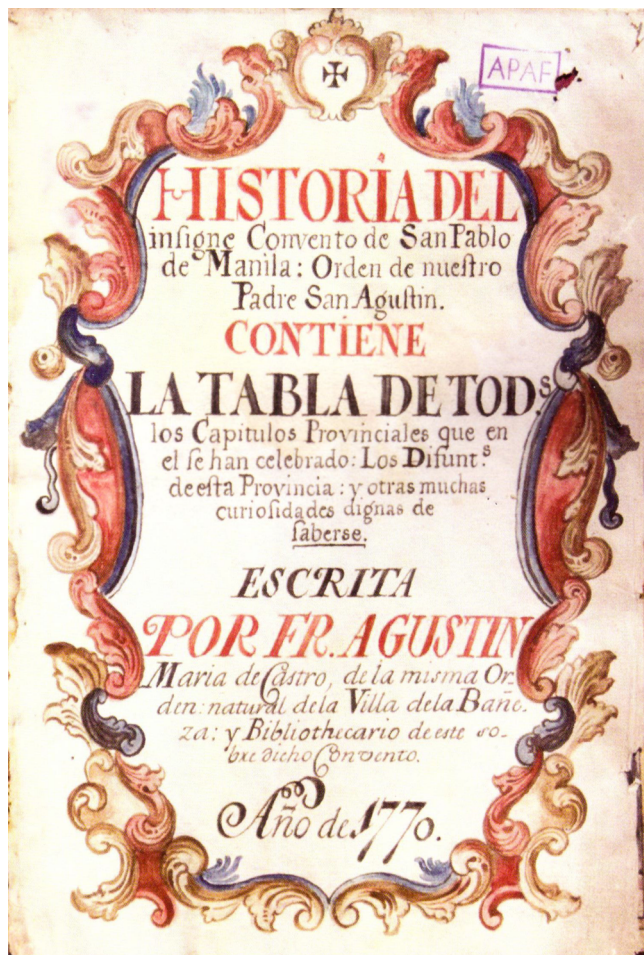 APAF
HISTORIA DEL
insigne Convento de San Pablo
de Manila: Orden de nueſtro
Padre San Aguſtin.
CONTIENE
LA TABLA DE TOD.ˢ
los Capitulos Provinciales que en
el ſe han celebrado: Los Difunt.ˢ
de eſta Provincia: y otras muchas
curioſidades dignas de
ſaberse.
ESCRITA
POR FR. AGUSTIN
Maria de Castro, de la misma Or-
den: natural de la Villa de la Bañe-
za: y Bibliothecario de este so-
bre dicho Convento.
Año de 1770.